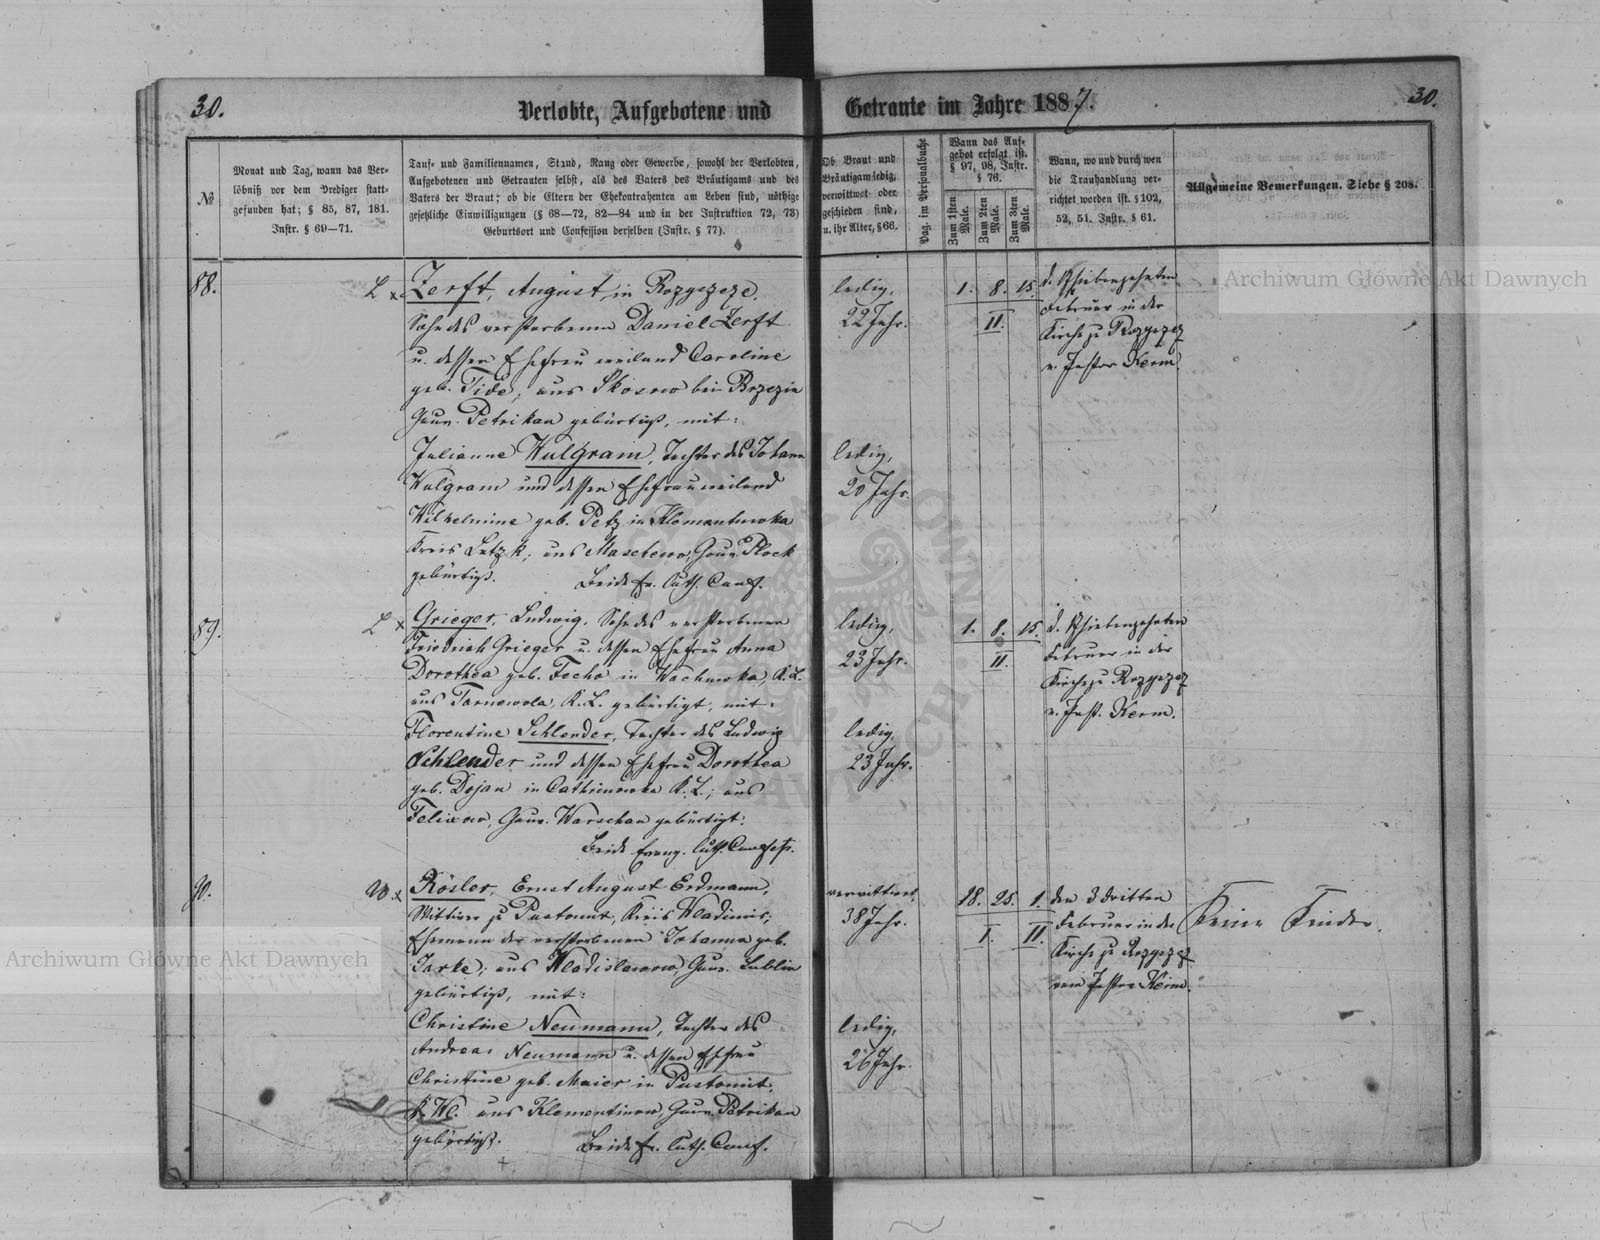 30.
Verlobte, Aufgebotene und
Getraute im Jahre 1887.
30.
№
Monat und Tag, wann das Ver-
löbniß vor dem Prediger statt-
gefunden hat; § 85, 87, 181.
Instr. § 69—71.
Tauf- und Familiennamen, Stand, Rang oder Gewerbe, sowohl der Verlobten,
Aufgebotenen und Getrauten selbst, als des Vaters des Bräutigams und des
Vaters der Braut; ob die Eltern der Ehekontrahenten am Leben sind, nöthige
gesetzliche Einwilligungen (§ 68—72, 82—84 und in der Instruktion 72, 73)
Geburtsort und Confession derselben (Instr. § 77).
Ob Braut und
Bräutigam ledig,
verwittwet oder
geschieden sind,
u. ihr Alter, § 66.
Pag. im Personalbuche
Wann das Auf-
gebot erfolgt ist.
§ 97, 98, Instr.
§ 76.
Zum 1sten
Male.
Zum 2ten
Male.
Zum 3ten
Male.
Wann, wo und durch wen
die Trauhandlung ver-
richtet worden ist. § 102,
52, 51. Instr. § 61.
Allgemeine Bemerkungen. Siehe § 208.
88.
L x
Zerft, August, in Rozyszcze,
Sohn des verstorbenen Daniel Zerft
u. dessen Ehefrau weiland Caroline
geb. Tide, aus Skosno bei Brzezin
Gouv. Petrikau gebürtig, mit:
Julianne Wulgram, Tochter des Johann
Wulgram und dessen Ehefrau weiland
Wilhelmine geb. Petz in Klementowka
Kreis Lutzk, aus Gouv. Plock
gebürtig. Beide ev. luth. Conf.
ledig,
22 Jahr.
ledig,
20 Jahr.
1. 8. 15.
II.
d. Siebenzehnten
Februar in der
Kirche zu Rozyszcz
v. Pastor Kerm.
89.
L x
Grieger, Ludwig, Sohn des verstorbenen
Friedrich Grieger u. dessen Ehefrau Anna
Dorothea geb. Fecho in Wachnowka, K. L.
aus Tarnowola, K. L. gebürtigt, mit:
Florentine Schlender, Tochter des Ludwig
Schlender und dessen Ehefrau Dorothea
geb. Dojan in Cathrinowka K. L.; aus
Felixow, Gouv. Warschau gebürtigt.
Beide evang. luth. Confess.
ledig,
23 Jahr.
ledig,
23 Jahr.
1. 8. 15.
II.
d. Siebenzehnten
Februar in der
Kirche zu Rozyszcz
v. Past. Kerm.
90.
W. x
Rösler, Ernst August Erdmann,
Wittwer zu Pustomit, Kreis Wladimir;
Ehemann der verstorbenen Johanna geb.
Jarke; aus Wladislawow, Gouv. Lublin
gebürtig, mit:
Christine Neumann, Tochter des
Andreas Neumann u. dessen Ehefrau
Christine geb. Maier in Pustomit,
K. Wl. aus Klementinow, Gouv. Petrikau
gebürtigt. Beide ev. luth. Conf.
verwittwet,
38 Jahr.
ledig,
26 Jahr.
18. 25. 1.
I. II.
den 3 dritten
Februar in der
Kirche zu Rozyszcz
vom Pastor Kerm.
Keine Kinder.
Archiwum Główne Akt Dawnych
Archiwum Główne Akt Dawnych